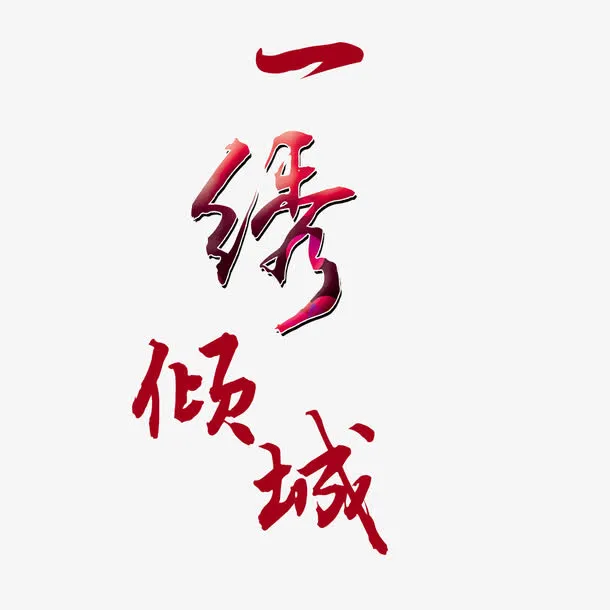 一绣倾城